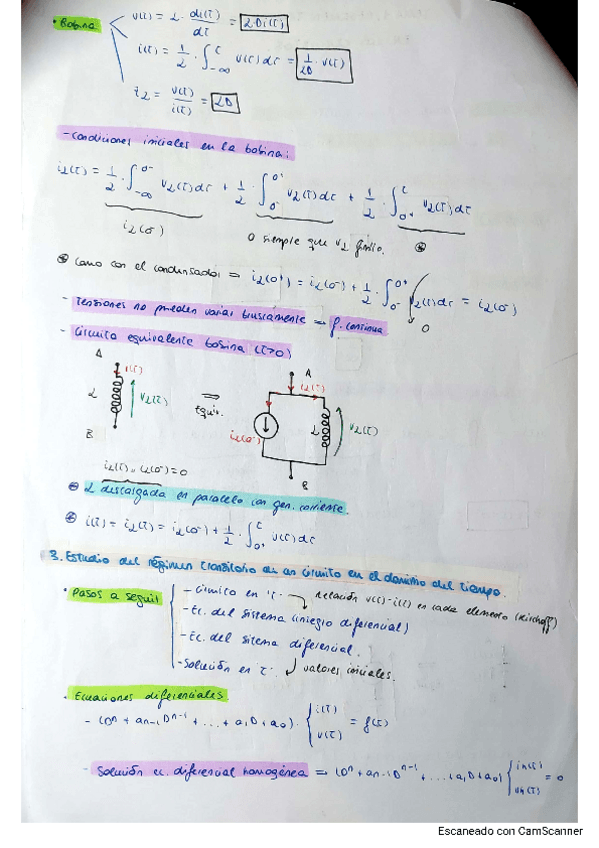 · Bobina
v(t) = L · di(t)/dt = LDi(t)
i(t) = 1/L · ∫_{-∞}^{t} v(τ)dτ = 1/LD · v(t)
z_L = v(t)/i(t) = LD
- Condiciones iniciales en la bobina:
i_L(t) = 1/L · ∫_{-∞}^{0^-} v_L(τ)dτ + 1/L · ∫_{0^-}^{0^+} v_L(τ)dτ + 1/L · ∫_{0^+}^{t} v_L(τ)dτ
i_L(0^-) 0 siempre que v_L finito. ⊛
⊛ Como con el condensador ⇒ i_L(0^+) = i_L(0^-) + 1/L · ∫_{0^-}^{0^+} v_L(τ)dτ = i_L(0^-)
0
- Tensiones no pueden variar bruscamente ⇒ f. continua
- Circuito equivalente bobina (t>0)
A A
i(t) i_L(t)
L v_L(t) ⇒ Equiv. i_L(0^-) L v_L(t)
B B
i_L(0^-)=0
⊛ L descargada en paralelo con gen. corriente.
⊛ i(t) = i_L(t) = i_L(0^-) + 1/L · ∫_{0^+}^{t} v(τ)dτ
3. Estudio del régimen transitorio de un circuito en el dominio del tiempo.
· Pasos a seguir
- Circuito en "t". → Relación v(t)-i(t) en cada elemento (Kirchoff)
- Ec. del sistema (integro diferencial)
- Ec. del sitema diferencial.
- Solución en "t" ↓ valores iniciales.
· Ecuaciones diferenciales
- (D^n + a_{n-1}D^{n-1} + ... + a_1D + a_0) · { i(t) v(t) = f(t)
- Solución ec. diferencial homogénea ⇒ (D^n + a_{n-1}D^{n-1} + ... + a_1D + a_0) { i_h(t) v_h(t) = 0
Escaneado con CamScanner